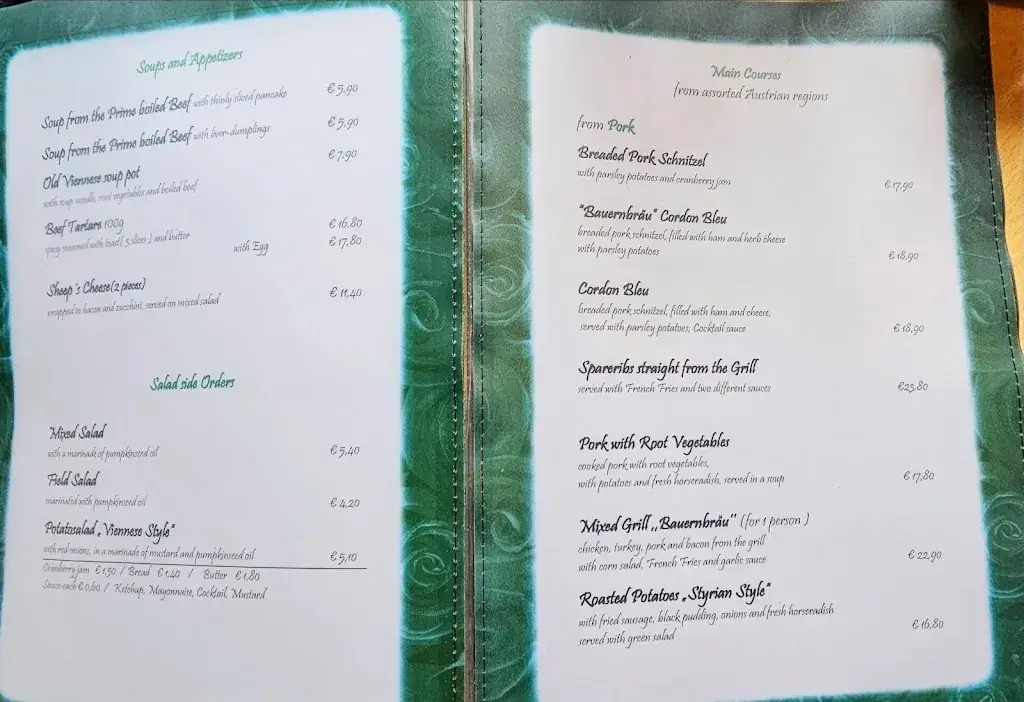 Soups and Appetizers
Soup from the Prime boiled Beef with thinly sliced pancake € 5,90
Soup from the Prime boiled Beef with liver-dumplings € 5,90
Old Viennese soup pot € 7,90
with soup noodle, root vegetables and boiled beef
Beef Tartare 100g € 16,80
spicy seasoned with toast ( 3 slices ) and butter with Egg € 17,80
Sheep´s Cheese (2 pieces)
wrapped in bacon and zucchini, served on mixed salad € 11,40
Salad side Orders
Mixed Salad
with a marinade of pumpkinseed oil € 5,40
Field Salad
marinated with pumpkinseed oil € 4,20
Potatosalad „Viennese Style“
with red onions, in a marinade of mustard and pumpkinseed oil € 5,10
Cranberry jam € 1,50 / Bread € 1,40 / Butter € 1,80
Sauce each € 0,60 / Ketchup, Mayonnaise, Cocktail, Mustard
Main Courses
from assorted Austrian regions
from Pork
Breaded Pork Schnitzel
with parsley potatoes and cranberry jam € 17,90
"Bauernbräu" Cordon Bleu
breaded pork schnitzel, filled with ham and herb cheese
with parsley potatoes € 18,90
Cordon Bleu
breaded pork schnitzel, filled with ham and cheese,
served with parsley potatoes, Cocktail sauce € 18,90
Spareribs straight from the Grill
served with French Fries and two different sauces €23,80
Pork with Root Vegetables
cooked pork with root vegetables,
with potatoes and fresh horseradish, served in a soup € 17,80
Mixed Grill ,,Bauernbräu'' (for 1 person )
chicken, turkey, pork and bacon from the grill
with corn salad, French Fries and garlic sauce € 22,90
Roasted Potatoes „Styrian Style“
with fried sausage, black pudding, onions and fresh horseradish
served with green salad € 16,80